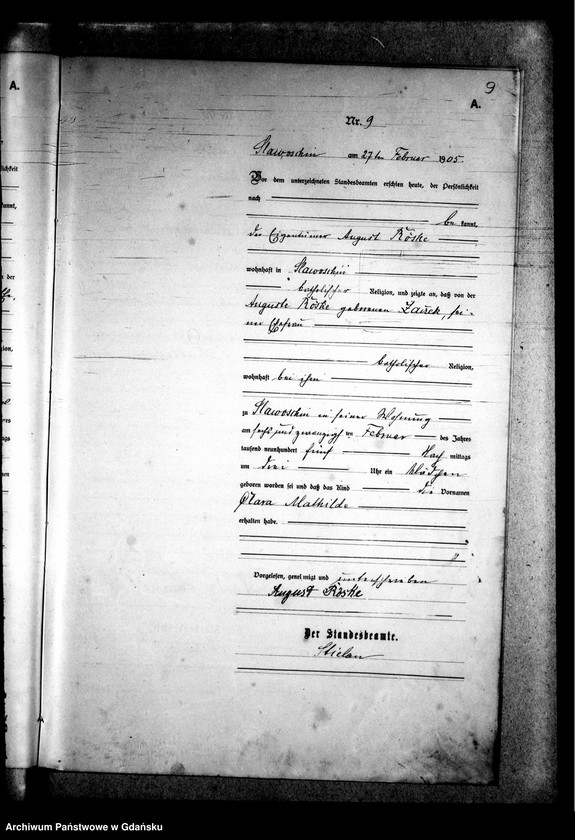 A.
9
A.
Nr. 9
Slawoschin am 27ten Februar 1905.
Vor dem unterzeichneten Standesbeamten erschien heute, der Persönlichkeit
nach
be kannt,
der Eigentümer August Röske
wohnhaft in Slawoschin
katholischer Religion, und zeigte an, daß von der
Auguste Röske geborenen, sei-
ner Ehefrau
katholischer Religion,
wohnhaft bei ihm
zu Slawoschin in seiner Wohnung
am sechsundzwanzigsten Februar des Jahres
tausend neunhundert fünf Nach mittags
um drei Uhr ein Mädchen
geboren worden sei und daß das Kind die Vornamen
Clara Mathilde
erhalten habe.
Vorgelesen, genehmigt und unterschrieben
August Röske
Der Standesbeamte.
Archiwum Państwowe w Gdańsku